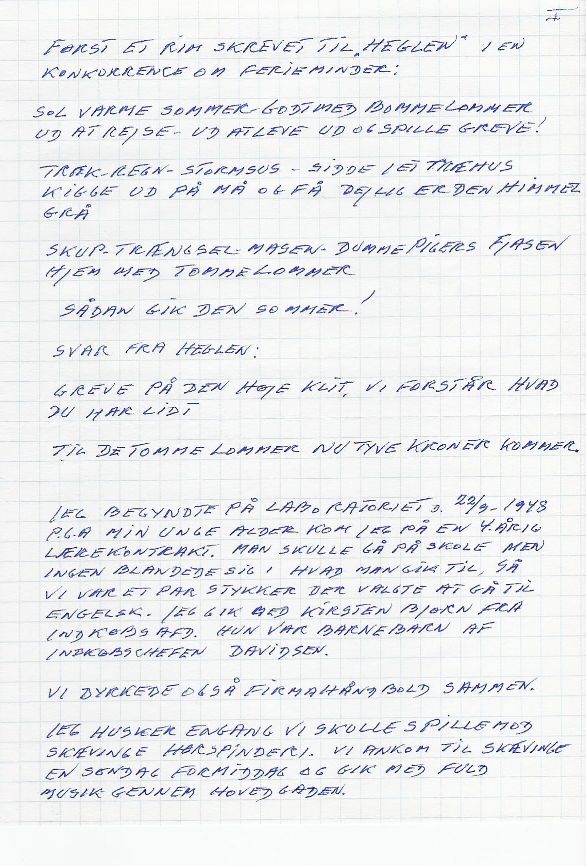 I
FØRST ET RIM SKREVET TIL "HEGLEN" I EN
KONKURRENCE OM FERIEMINDER:
SOL VARME SOMMER-GODT MED BOMMELOMMER
UD AT REJSE - UD AT LEVE UD OG SPILLE GREVE!
TRÆK-REGN-STORMSUS - SIDDE I ET TRÆHUS
KIGGE UD PÅ MÅ OG FÅ DEJLIG ER DEN HIMMEL
GRÅ
SKUP-TRÆNGSEL-MASEN-DUMME PIGERS FJASEN
HJEM MED TOMME LOMMER
SÅDAN GIK DEN SOMMER!
SVAR FRA HEGLEN:
GREVE PÅ DEN HØJE KLIT, VI FORSTÅR HVAD
DU HAR LIDT
TIL DE TOMME LOMMER NU TYVE KRONER KOMMER.
JEG BEGYNDTE PÅ LABORATORIET D. 22/9-1948
P.G.A MIN UNGE ALDER KOM JEG PÅ EN 4.ÅRIG
LÆREKONTRAKT. MAN SKULLE GÅ PÅ SKOLE MEN
INGEN BLANDEDE SIG I HVAD MAN GIK TIL, SÅ
VI VAR ET PAR STYKKER DER VALGTE AT GÅ TIL
ENGELSK. JEG GIK MED KIRSTEN BJØRN FRA
INDKØBSAFD. HUN VAR BARNEBARN AF
INDKØBSCHEFEN DAVIDSEN.
VI DYRKEDE OGSÅ FIRMAHÅNDBOLD SAMMEN.
JEG HUSKER ENGANG VI SKULLE SPILLE MOD
SKÆVINGE HØRSPINDERI. VI ANKOM TIL SKÆVINGE
EN SØNDAG FORMIDDAG OG GIK MED FULD
MUSIK GENNEM HOVEDGADEN.